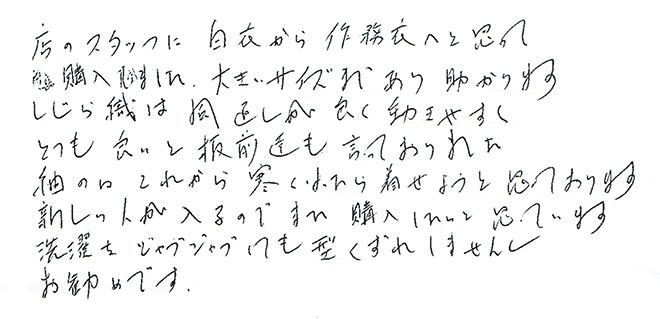 店のスタッフに 白衣から 作務衣へと思って
購入しました。大きいサイズまであり 助かります
しじら織は 風通しが 良く 動きやすく
とても 良いと 板前達も 言っておりました
紬のは これから 寒くなったら 着せようと 思っております
新しい人が 入るので また 購入したいと 思っています
洗濯を ジャブジャブしても 型くずれしませんし
お勧めです.